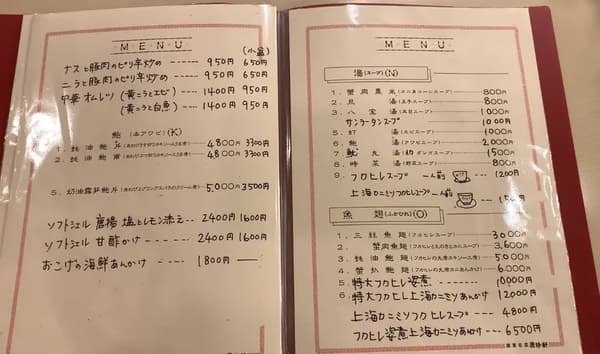 MENU
(小盆)
ナスと豚肉のピリ辛炒め 950円 650円
ニラと豚肉のピリ辛炒め 950円 650円
中華オムレツ (黄ニラとエビ) 1400円 950円
(黄ニラと白魚) 1400円 950円
鮑 (本アワビ) (K)
1. 蚝油鮑 4,800円 3300円
2. 蚝油鮑甫 4,800円 3300円
5. 奶油露笋鮑片 (あわびとグリンアスパラのクリーム煮) 5,000円 3500円
ソフトシェル 唐揚 塩とレモン添え 2400円 1600円
ソフトシェル 甘酢かけ 2400円 1600円
おこげの海鮮あんかけ 1800円
MENU
湯(スープ)(N)
1. 蟹肉粟米 (カニ入コーンスープ) 800円
2. 旦湯 (玉子スープ) 800円
3. 八宝湯 (五目スープ) 1000円
サンラータンスープ 1000円
5. 虾湯 (エビスープ) 1000円
6. 鮑湯 (アワビスープ) 2000円
7. 魷丸湯 1500円
8. 時菜湯 (野菜スープ) 800円
9. フカヒレスープ 一人前 1200円
上海カニミソフカヒレスープ 一人前
魚翅(ふかひれ)(O)
1. 三絲魚翅 (フカヒレスープ) 3000円
2. 蟹肉魚翅 (フカヒレと丸のまとカニスープ) 3,600円
3. 蚝油魚翅 5,000円
4. 蟹扒鮑翅 6,000円
5. 特大フカヒレ姿煮 10000円
6. 特大フカヒレ上海カニミソあんかけ 12000円
上海カニミソフカヒレスープ 4800円
フカヒレ姿煮上海カニミソあんかけ 6500円